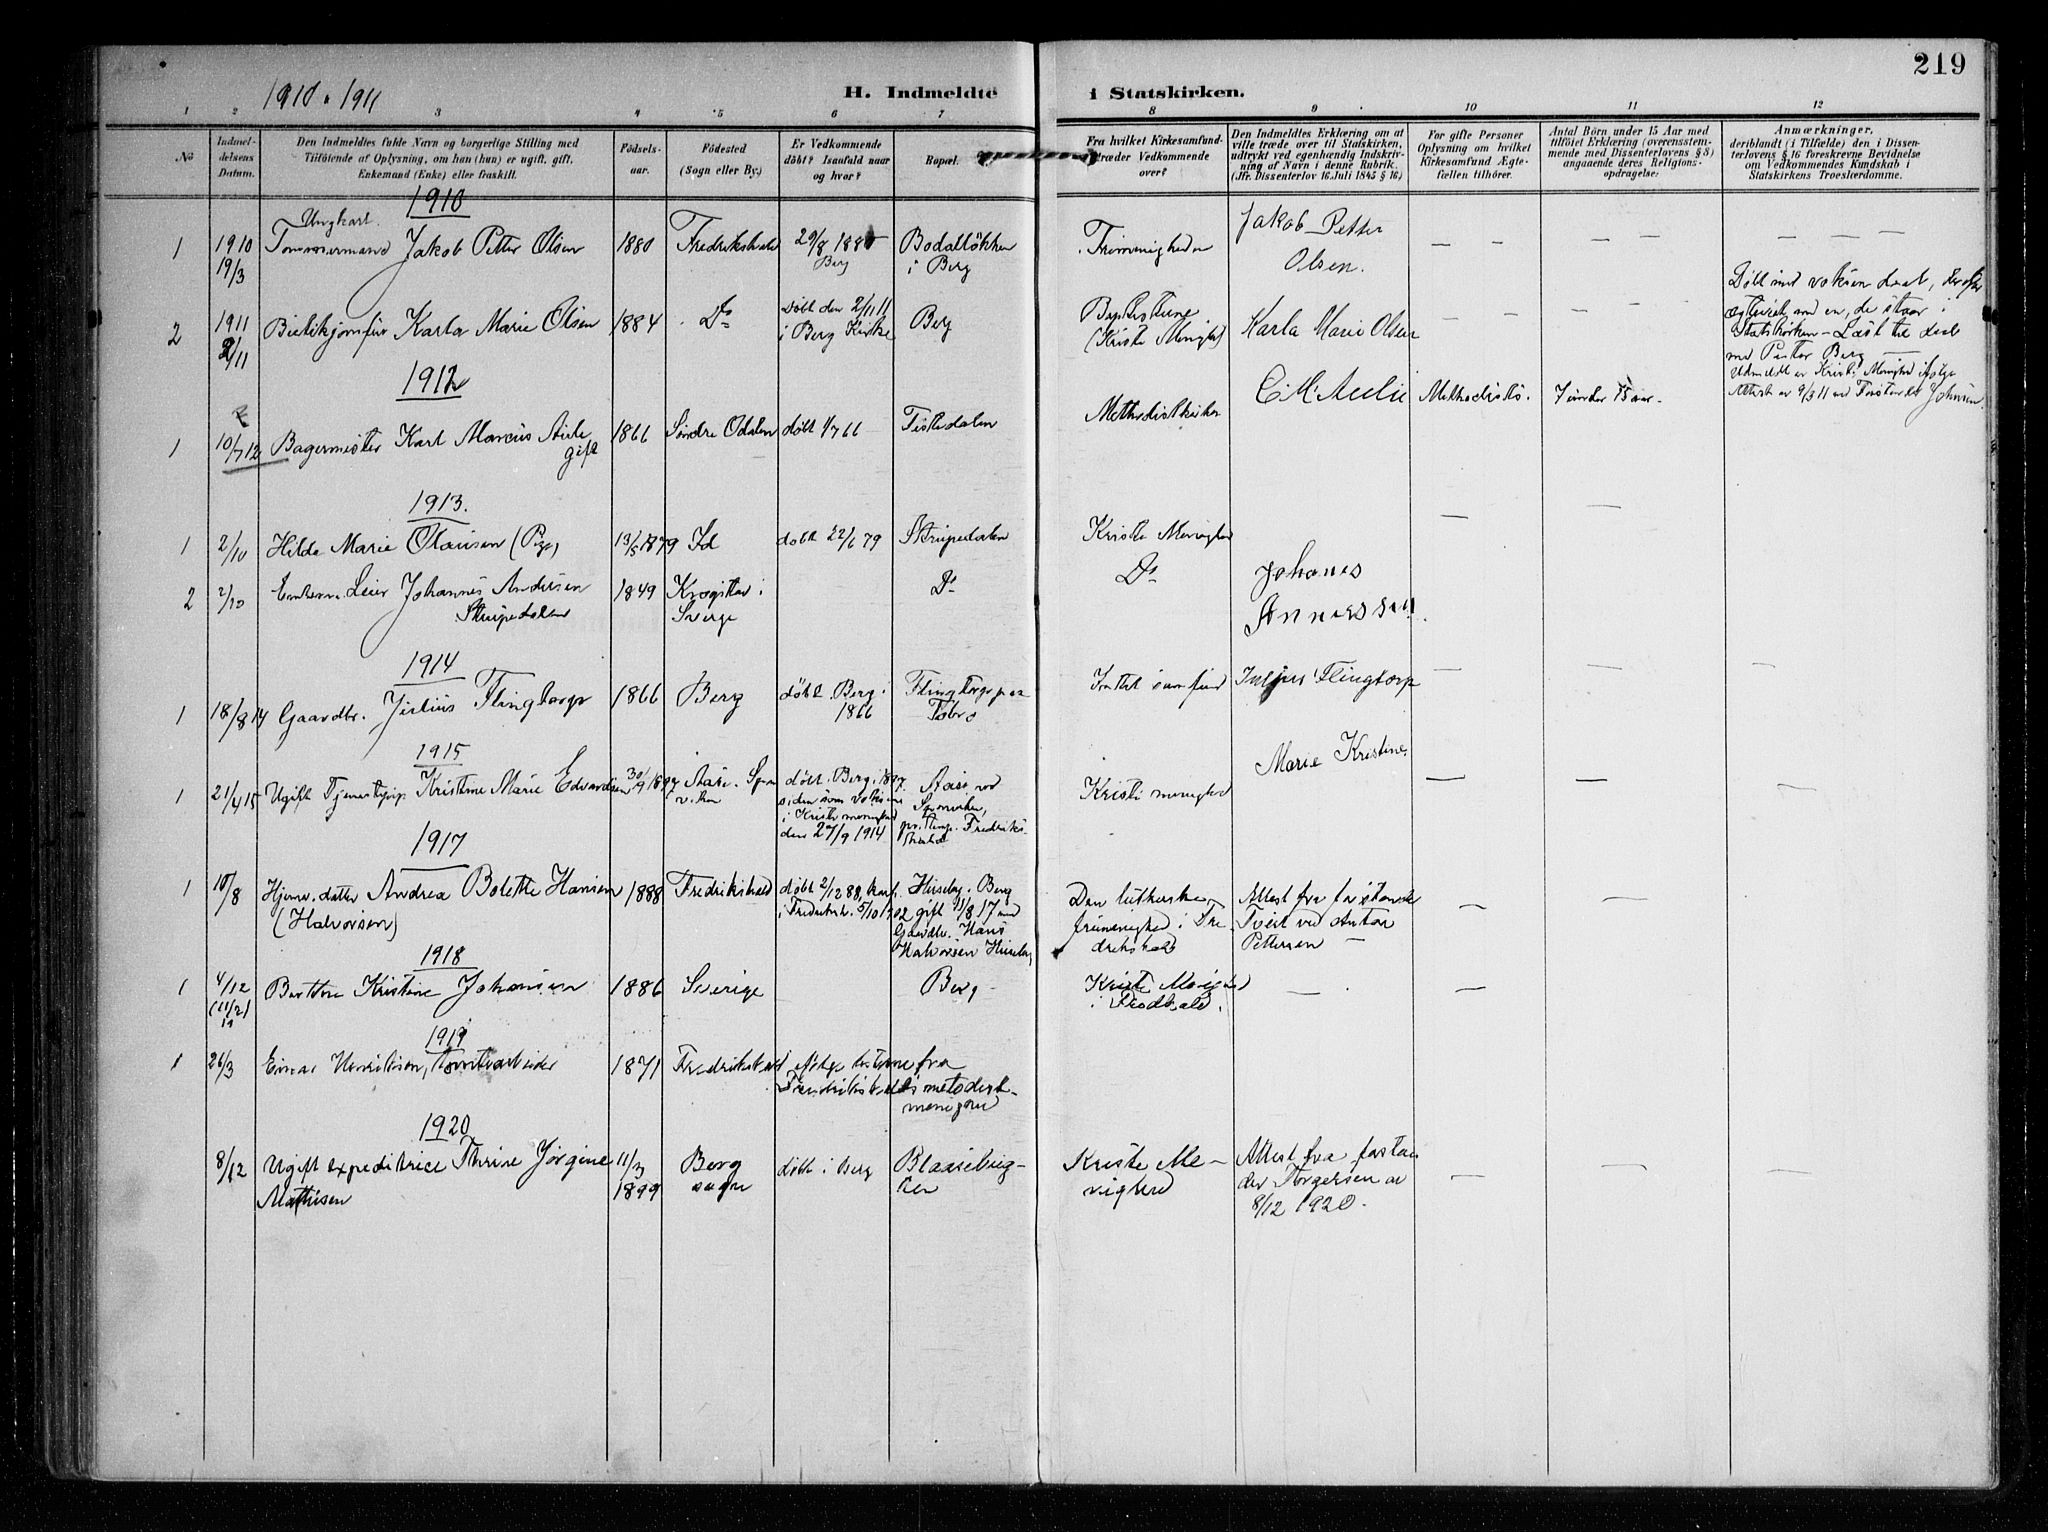 219
1910 . 1911
H. Indmeldte i Statskirken.
1 2 3 4 5 6 7 8 9 10 11 12
No
Indmel-
delsens
Datum.
Den Indmeldtes fulde Navn og borgerlige Stilling med
Tilföiende af Oplysning, om han (hun) er ugift, gift,
Enkemand (Enke) eller fraskilt.
Födsels-
aar.
Födested
(Sogn eller By.)
Er Vedkommende
döbt? Isaafald naar
og hvor?
Bopæl.
Fra hvilket Kirkesamfund
træder Vedkommende
over?
Den Indmeldtes Erklæring om at
ville træde over til Statskirken,
udtrykt ved egenhændig Indskriv-
ning af Navn i denne Rubrik.
(Jfr. Dissenterlov 16. Juli 1845 § 16)
For gifte Personer
Oplysning om hvilket
Kirkesamfund Ægte-
fællen tilhörer.
Antal Börn under 15 Aar med
tilföiet Erklæring (overensstem-
mende med Dissenterlovens § 8)
angaaende deres Religions-
opdragelse:
Anmærkninger,
deriblandt (i Tilfælde) den i Dissen-
terlovens § 16 foreskrevne Bevidnelse
om Vedkommendes Kundskab i
Statskirkens Troeslærdomme.
1910
1
1910
19/3
Ungkarl.
Tømmermand Jakob Petter Olsen
1880
Fredrikshald
29/8 1880
Berg
Bodalløkken
i Berg
Frimenigheden
Jakob Petter
Olsen.
— — — — — —
2
1911
2/11
Karla Marie Olsen
1884
Do
Døbt den 2/11 11
i Berg Kirke
Berg
Baptisterne
(Kristi Menighed)
Karla Marie Olsen
— — —
Statskirken – Læst til
med Pastor Berg —
Udmeldt av Kristi Menighed ifølge
Attest av 9/3 11 ved Forstander Johnsen.
1912
1
10/7 12
Bagermester Karl Marcus Aulie
gift
1866
Søndre Odalen
døbt 1/7 66
Tistedalen
Methodistkirken
C. M. Aulie
Methodistk.
7 under 15 aar.
1913.
1
2/10
Hilda Marie Olausen (Pige)
13/5 1879
Id
døbt 22/6 79
Strupedalen
Kristi Menighed
— —
2
2/10
Enkem. Leier Johannes Andersen
Strupedalen
1849
Krogstad i
Sverge
Do
Do
Johanes
Annerssen.
1914
1
18/8 14
Gaardbr. Julius Flingtorp
1866
Berg
døbt i Berg i
1866
Flingtorp pr
Tobro
Intet samfund
Julius Flingtorp
— — —
1915
1
21/4 15
Ugift Tjenestepige Kristine Marie Edvardsen
30/9 1897
døbt i Berg i 1897.
siden som voksen
i Kristi menighed
den 27/9 1914
Aase ved
Sponviken,
pr. Fredriks-
hald
Kristi menighed
Marie Kristine.
— — —
1917
1
10/8
Hjemv. datter Andrea Bolette Hansen
(Halvorsen)
1888
Fredrikshald
døbt 2/12 88, konf.
i Fredriksh. 5/10 1902
Hirselag i Berg
gift 11/8 17 med
Gaardbr. Hans
Halvorsen Hirselag
Den lutherske
frimenighed i Fre-
drikshald
Attest fra forstander
Tveit ved Anton
Pettersen —
— —
1918
1
4/12
(11/2)
19
Berthe Kristine Johansen
1886
Sverige
Berg
Kristi Menighed
i Fredhald.
— —
1919
1
26/3
Einar Henriksen, Tomtearbeider
1871
Fredrikshald
ifølge fra
Fredrikshalds metodist-
menighed
1920
8/12
Ugift expeditrice Thrine Jørgine
Mathisen
11/3
1899
Berg
sogn
døbt i Berg
Kristi Me-
nighed
Attest fra forstan
der Torgersen av
8/12 1920.
— — —